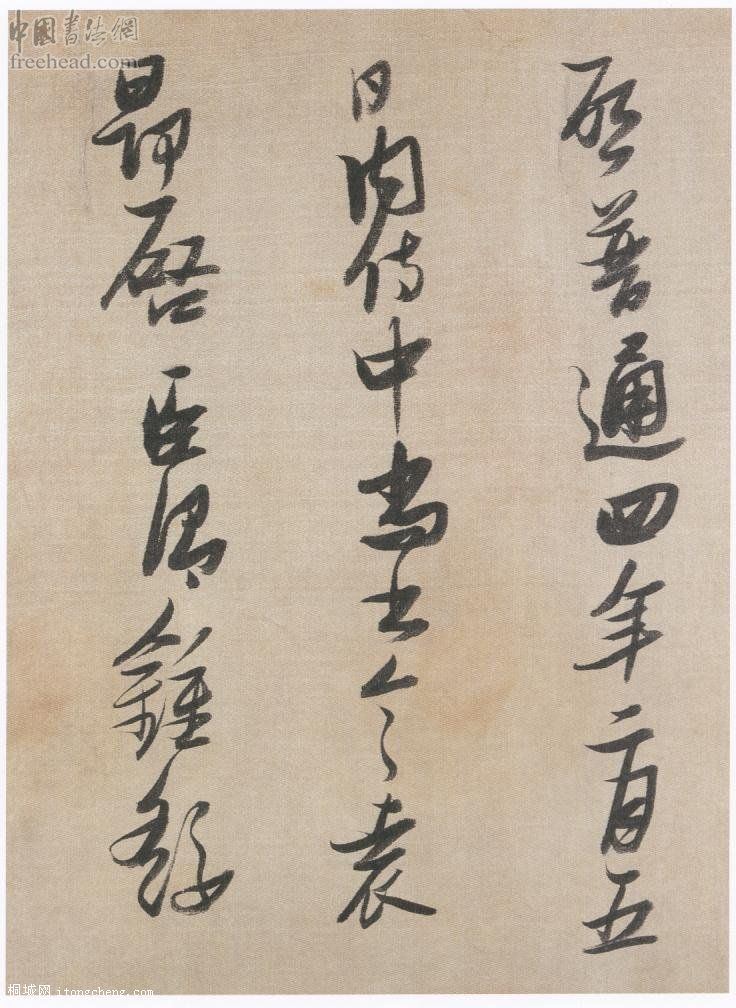 中國書法網
freehead.com
啓普通四年二月五
日内侍中尚書令袁
昂啓臣謂鍾繇
桐城网 itongcheng.com